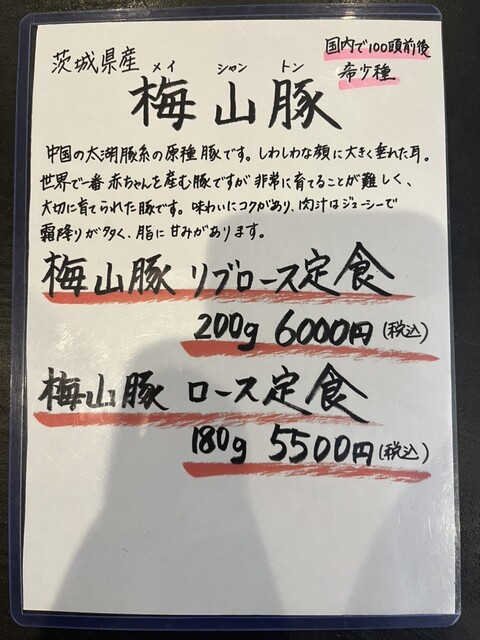 茨城県産
国内で100頭前後
希少種
メイ シャン トン
梅山豚
中国の太湖豚系の原種豚です。しわしわな顔に大きく垂れた耳。
世界で一番赤ちゃんを産む豚ですが非常に育てることが難しく、
大切に育てられた豚です。味わいにコクがあり、肉汁はジューシーで
霜降りが多く、脂に甘みがあります。
梅山豚 リブロース定食
200g 6000円(税込)
梅山豚 ロース定食
180g 5500円(税込)